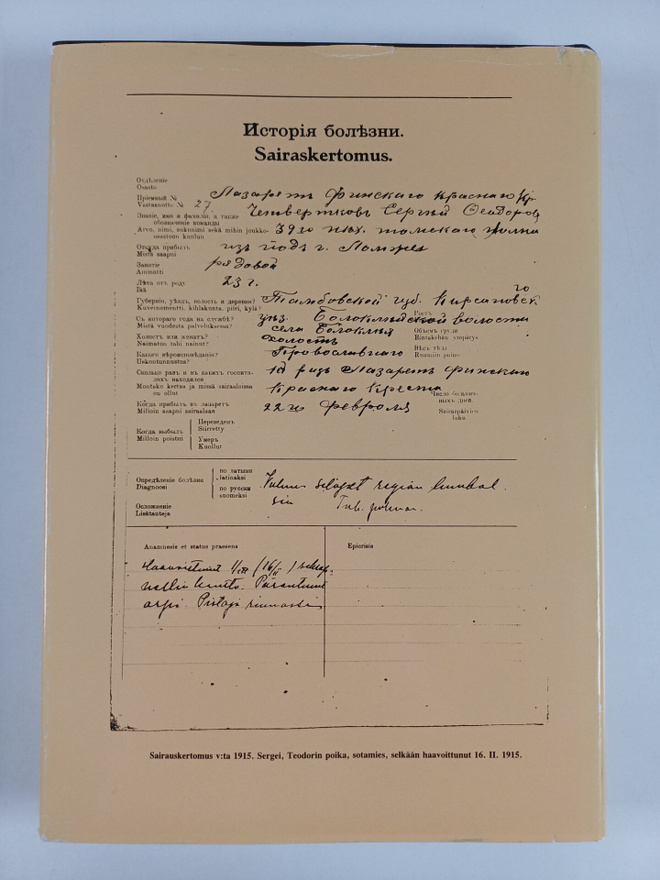 Исторія болѣзни.
Sairaskertomus.
Отдѣленіе
Osasto
Лазаретъ Финскаго Краснаго Кр.
Пріемный №
Vastaanotto №
27
Четвертковъ Сергѣй Ѳеодоров
Званіе, имя и фамилія, а также
обозначеніе команды
Arvo, nimi, sukunimi sekä mihin joukko-
osastoon kuuluu
39го пѣх. томскаго полка
Откуда прибылъ
Mistä saapui
изъ подъ г. Ломжея
Занятіе
Ammatti
рядовой
Лѣта отъ роду
Ikä
23 г.
Губернія, уѣздъ, волость и деревня?
Kuvernementti, kihlakunta, pitäjä, kylä?
Тамбовской губ. Кирсановск го
Съ котораго года на службѣ?
Mistä vuodesta palveluksessa?
уѣз. волости
села
Ростъ
Холостъ или женатъ?
Naimaton tahi nainut?
холостъ
Объемъ груди
Rintakehän ympärys
Какого вѣроисповѣданія?
Uskontunnustus?
Православнаго
Вѣсъ тѣла
Ruumiin paino
Сколько разъ и въ какихъ госпита-
ляхъ находился
Montako kertaa ja missä sairaaloissa
on ollut
1й разъ Лазаретъ Финскаго
Краснаго Креста
Число болѣзнен-
ныхъ дней.
Sairaspäivien
luku.
Когда прибылъ въ лазаретъ
Milloin saapui sairaalaan
22го февраля
Когда выбылъ
Milloin poistui
Переведенъ
Siirretty
Умеръ
Kuollut
Опредѣленіе болѣзни
Diagnoosi
по латыни
latinaksi
по русски
suomeksi
Vulnus sclopet regioni lumbal.
sin Tub. pulmon.
Осложненіе
Lisätauteja
Anamnesis et status praesens
Epicrisis
Haavoittunut
Parantunut
arpi. Pistoja rinnassa
Sairauskertomus v:ta 1915. Sergei, Teodorin poika, sotamies, selkään haavoittunut 16. II. 1915.